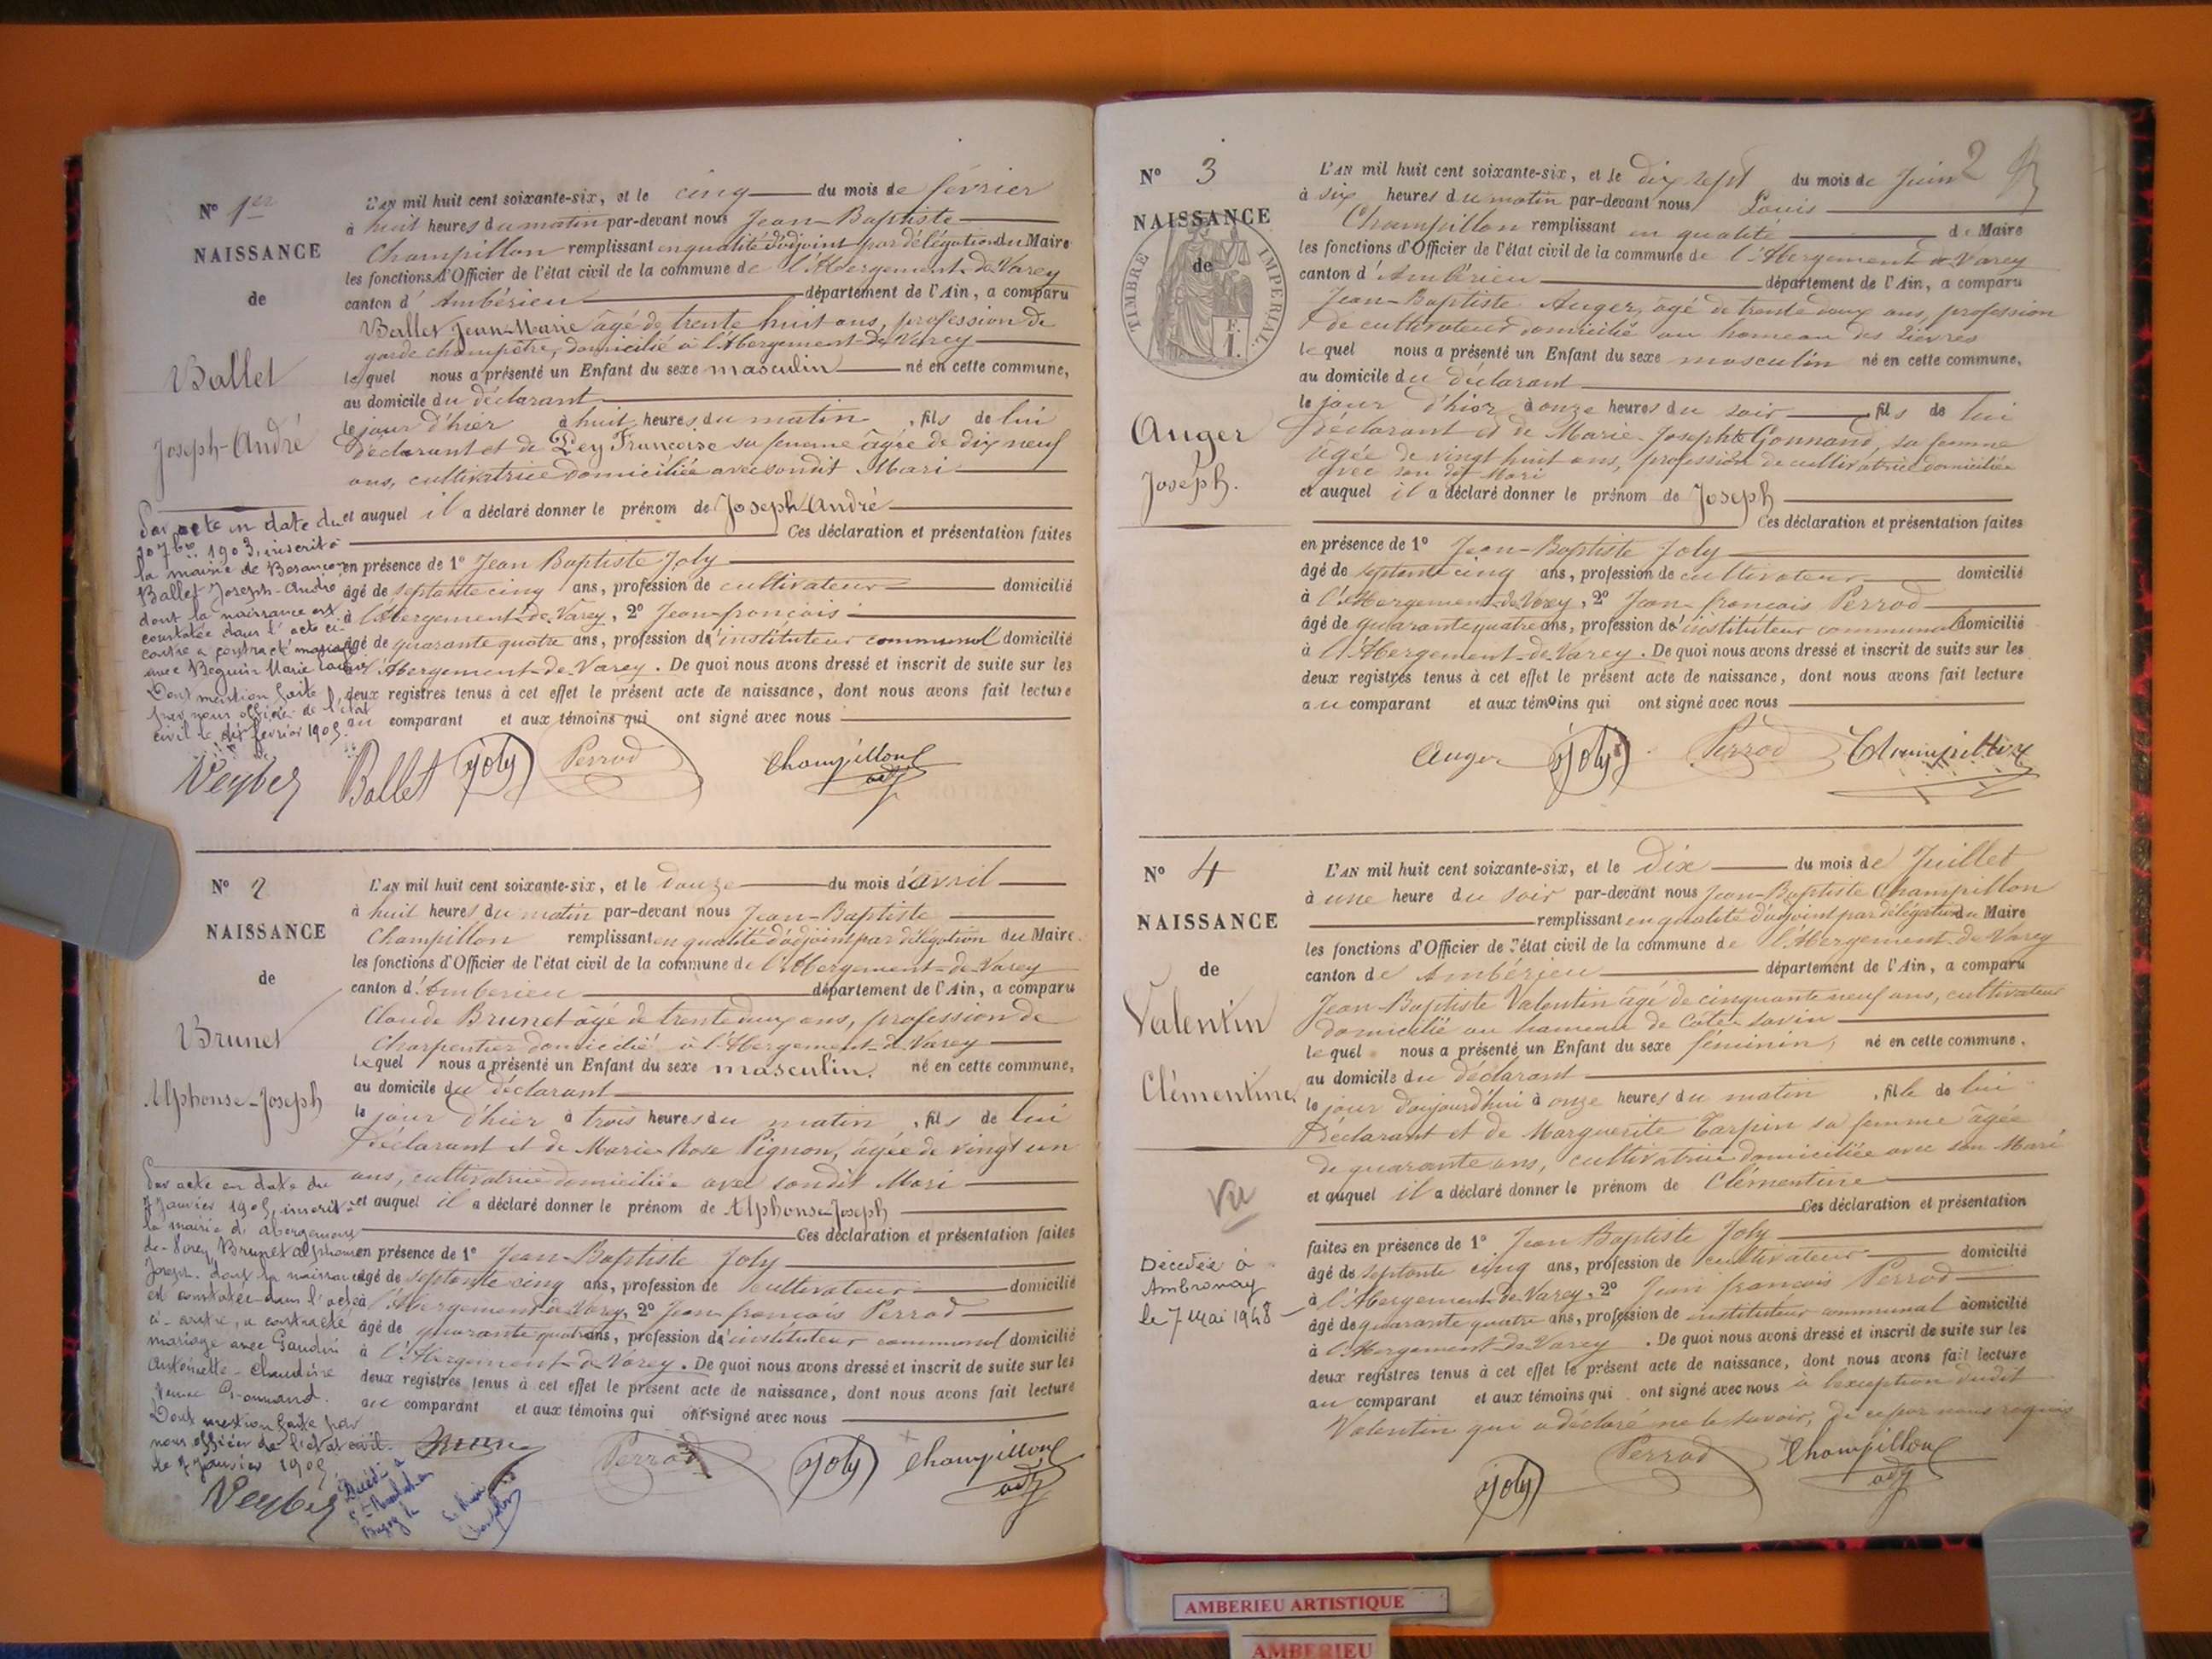 N° 1er
NAISSANCE
de
Ballet
Joseph-André
L'AN mil huit cent soixante-six, et le cinq du mois de février
à huit heures du matin par-devant nous Jean-Baptiste
Champillon remplissant en qualité d'adjoint par délégation du Maire
les fonctions d'Officier de l'état civil de la commune de l'Abergement-de-Varey
canton d'Ambérieu département de l'Ain, a comparu
Ballet Jean-Marie âgé de trente huit ans, profession de
garde champêtre, domicilié à l'Abergement-de-Varey
lequel nous a présenté un Enfant du sexe masculin né en cette commune,
au domicile du déclarant
le jour d'hier à huit heures du matin, fils de lui
déclarant et de Ley Françoise sa femme âgée de dix neuf
ans, cultivatrice domiciliée avec son dit Mari
et auquel il a déclaré donner le prénom de Joseph André
Ces déclaration et présentation faites
en présence de 1° Jean Baptiste Joly
âgé de septante cinq ans, profession de cultivateur domicilié
à l'Abergement-de-Varey, 2° Jean-françois
âgé de quarante quatre ans, profession d'instituteur communal domicilié
à l'Abergement-de-Varey. De quoi nous avons dressé et inscrit de suite sur les
deux registres tenus à cet effet le présent acte de naissance, dont nous avons fait lecture
au comparant et aux témoins qui ont signé avec nous
Par acte en date du
10 7bre 1903, inscrit à
la mairie de Besançon
Ballet Joseph-André
dont la naissance est
constatée dans l'acte ci-
contre a contracté mariage
avec Beguin Marie
Dont mention faite
par nous officier de l'état
civil le dix février 1905.
Veyber Ballet Joly Perrod Champillon adj
N° 2
NAISSANCE
de
Brunet
Alphonse-Joseph
L'AN mil huit cent soixante-six, et le douze du mois d'avril
à huit heures du matin par-devant nous Jean-Baptiste
Champillon remplissant en qualité d'adjoint par délégation du Maire.
les fonctions d'Officier de l'état civil de la commune de l'Abergement-de-Varey
canton d'Amberieu département de l'Ain, a comparu
Claude Brunet âgé de trente deux ans, profession de
Charpentier domicilié à l'Abergement-de-Varey
lequel nous a présenté un Enfant du sexe masculin. né en cette commune,
au domicile du déclarant
le jour d'hier à trois heures du matin, fils de lui
Déclarant et de Marie Rose Pignon, âgée de vingt un
ans, cultivatrice domiciliée avec son dit Mari
et auquel il a déclaré donner le prénom de Alphonse-Joseph
Ces déclaration et présentation faites
en présence de 1° Jean-Baptiste Joly
âgé de septante cinq ans, profession de cultivateur domicilié
à l'Abergement-de-Varey, 2° Jean-françois Perrod
âgé de quarante quatre ans, profession d'instituteur communal domicilié
à l'Abergement-de-Varey. De quoi nous avons dressé et inscrit de suite sur les
deux registres tenus à cet effet le présent acte de naissance, dont nous avons fait lecture
au comparant et aux témoins qui ont signé avec nous
Par acte en date du
7 Janvier 1905, inscrit à
la mairie d'abergement
de-Varey Brunet alphonse
Joseph. dont la naissance
est constatée dans l'acte
ci-contre, a contracté
mariage avec Gaudin
Antoinette-Claudine
veuve Gonnand.
Dont mention faite par
nous officier de l'état civil.
le 7 Janvier 1905
Veyber Brunet Perrod Joly Champillon adj
Décédé à
N° 3
NAISSANCE
de
TIMBRE IMPERIAL
Auger
Joseph.
2
L'AN mil huit cent soixante-six, et le dix sept du mois de Juin
à six heures du matin par-devant nous Louis
Champillon remplissant en qualité de Maire
les fonctions d'Officier de l'état civil de la commune de l'Abergement de Varey
canton d'Ambérieu département de l'Ain, a comparu
Jean-Baptiste Auger, âgé de trente deux ans, profession
de cultivateur domicilié au hameau des Lièvres
lequel nous a présenté un Enfant du sexe masculin né en cette commune,
au domicile du déclarant
le jour d'hier à onze heures du soir fils de lui
Déclarant et de Marie-Josephte Gonnand, sa femme
âgée de vingt huit ans, profession de cultivatrice domiciliée
avec son dit Mari
et auquel il a déclaré donner le prénom de Joseph
Ces déclaration et présentation faites
en présence de 1° Jean-Baptiste Joly
âgé de septante cinq ans, profession de cultivateur domicilié
à l'Abergement-de-Varey, 2° Jean-françois Perrod
âgé de quarante quatre ans, profession d'instituteur communal domicilié
à l'Abergement-de-Varey. De quoi nous avons dressé et inscrit de suite sur les
deux registres tenus à cet effet le présent acte de naissance, dont nous avons fait lecture
au comparant et aux témoins qui ont signé avec nous
Auger Joly Perrod Champillon
N° 4
NAISSANCE
de
Valentin
Clémentine
Vu
Décédée à
Ambronay
le 7 Mai 1948
L'AN mil huit cent soixante-six, et le Dix du mois de Juillet
à une heure du soir par-devant nous Jean-Baptiste Champillon
remplissant en qualité d'adjoint par délégation du Maire
les fonctions d'Officier de l'état civil de la commune de l'Abergement-de-Varey
canton de Ambérieu département de l'Ain, a comparu
Jean-Baptiste Valentin âgé de cinquante neuf ans, cultivateur
domicilié au hameau de Côte-savin
lequel nous a présenté un Enfant du sexe féminin, né en cette commune.
au domicile du Déclarant
le jour d'aujourd'hui à onze heures du matin, fille de lui
Déclarant et de Marguerite Tarpin sa femme âgée
de quarante ans, cultivatrice domiciliée avec son Mari
et auquel il a déclaré donner le prénom de Clémentine
Ces déclaration et présentation
faites en présence de 1° Jean Baptiste Joly
âgé de septante cinq ans, profession de cultivateur domicilié
à l'Abergement-de-Varey, 2° Jean françois Perrod
âgé de quarante quatre ans, profession de instituteur communal domicilié
à l'Abergement-de-Varey. De quoi nous avons dressé et inscrit de suite sur les
deux registres tenus à cet effet le présent acte de naissance, dont nous avons fait lecture
au comparant et aux témoins qui ont signé avec nous à l'exception dudit
Valentin qui a déclaré ne le savoir, de ce par nous requis
Joly Perrod Champillon adj
AMBERIEU ARTISTIQUE
AMBERIEU